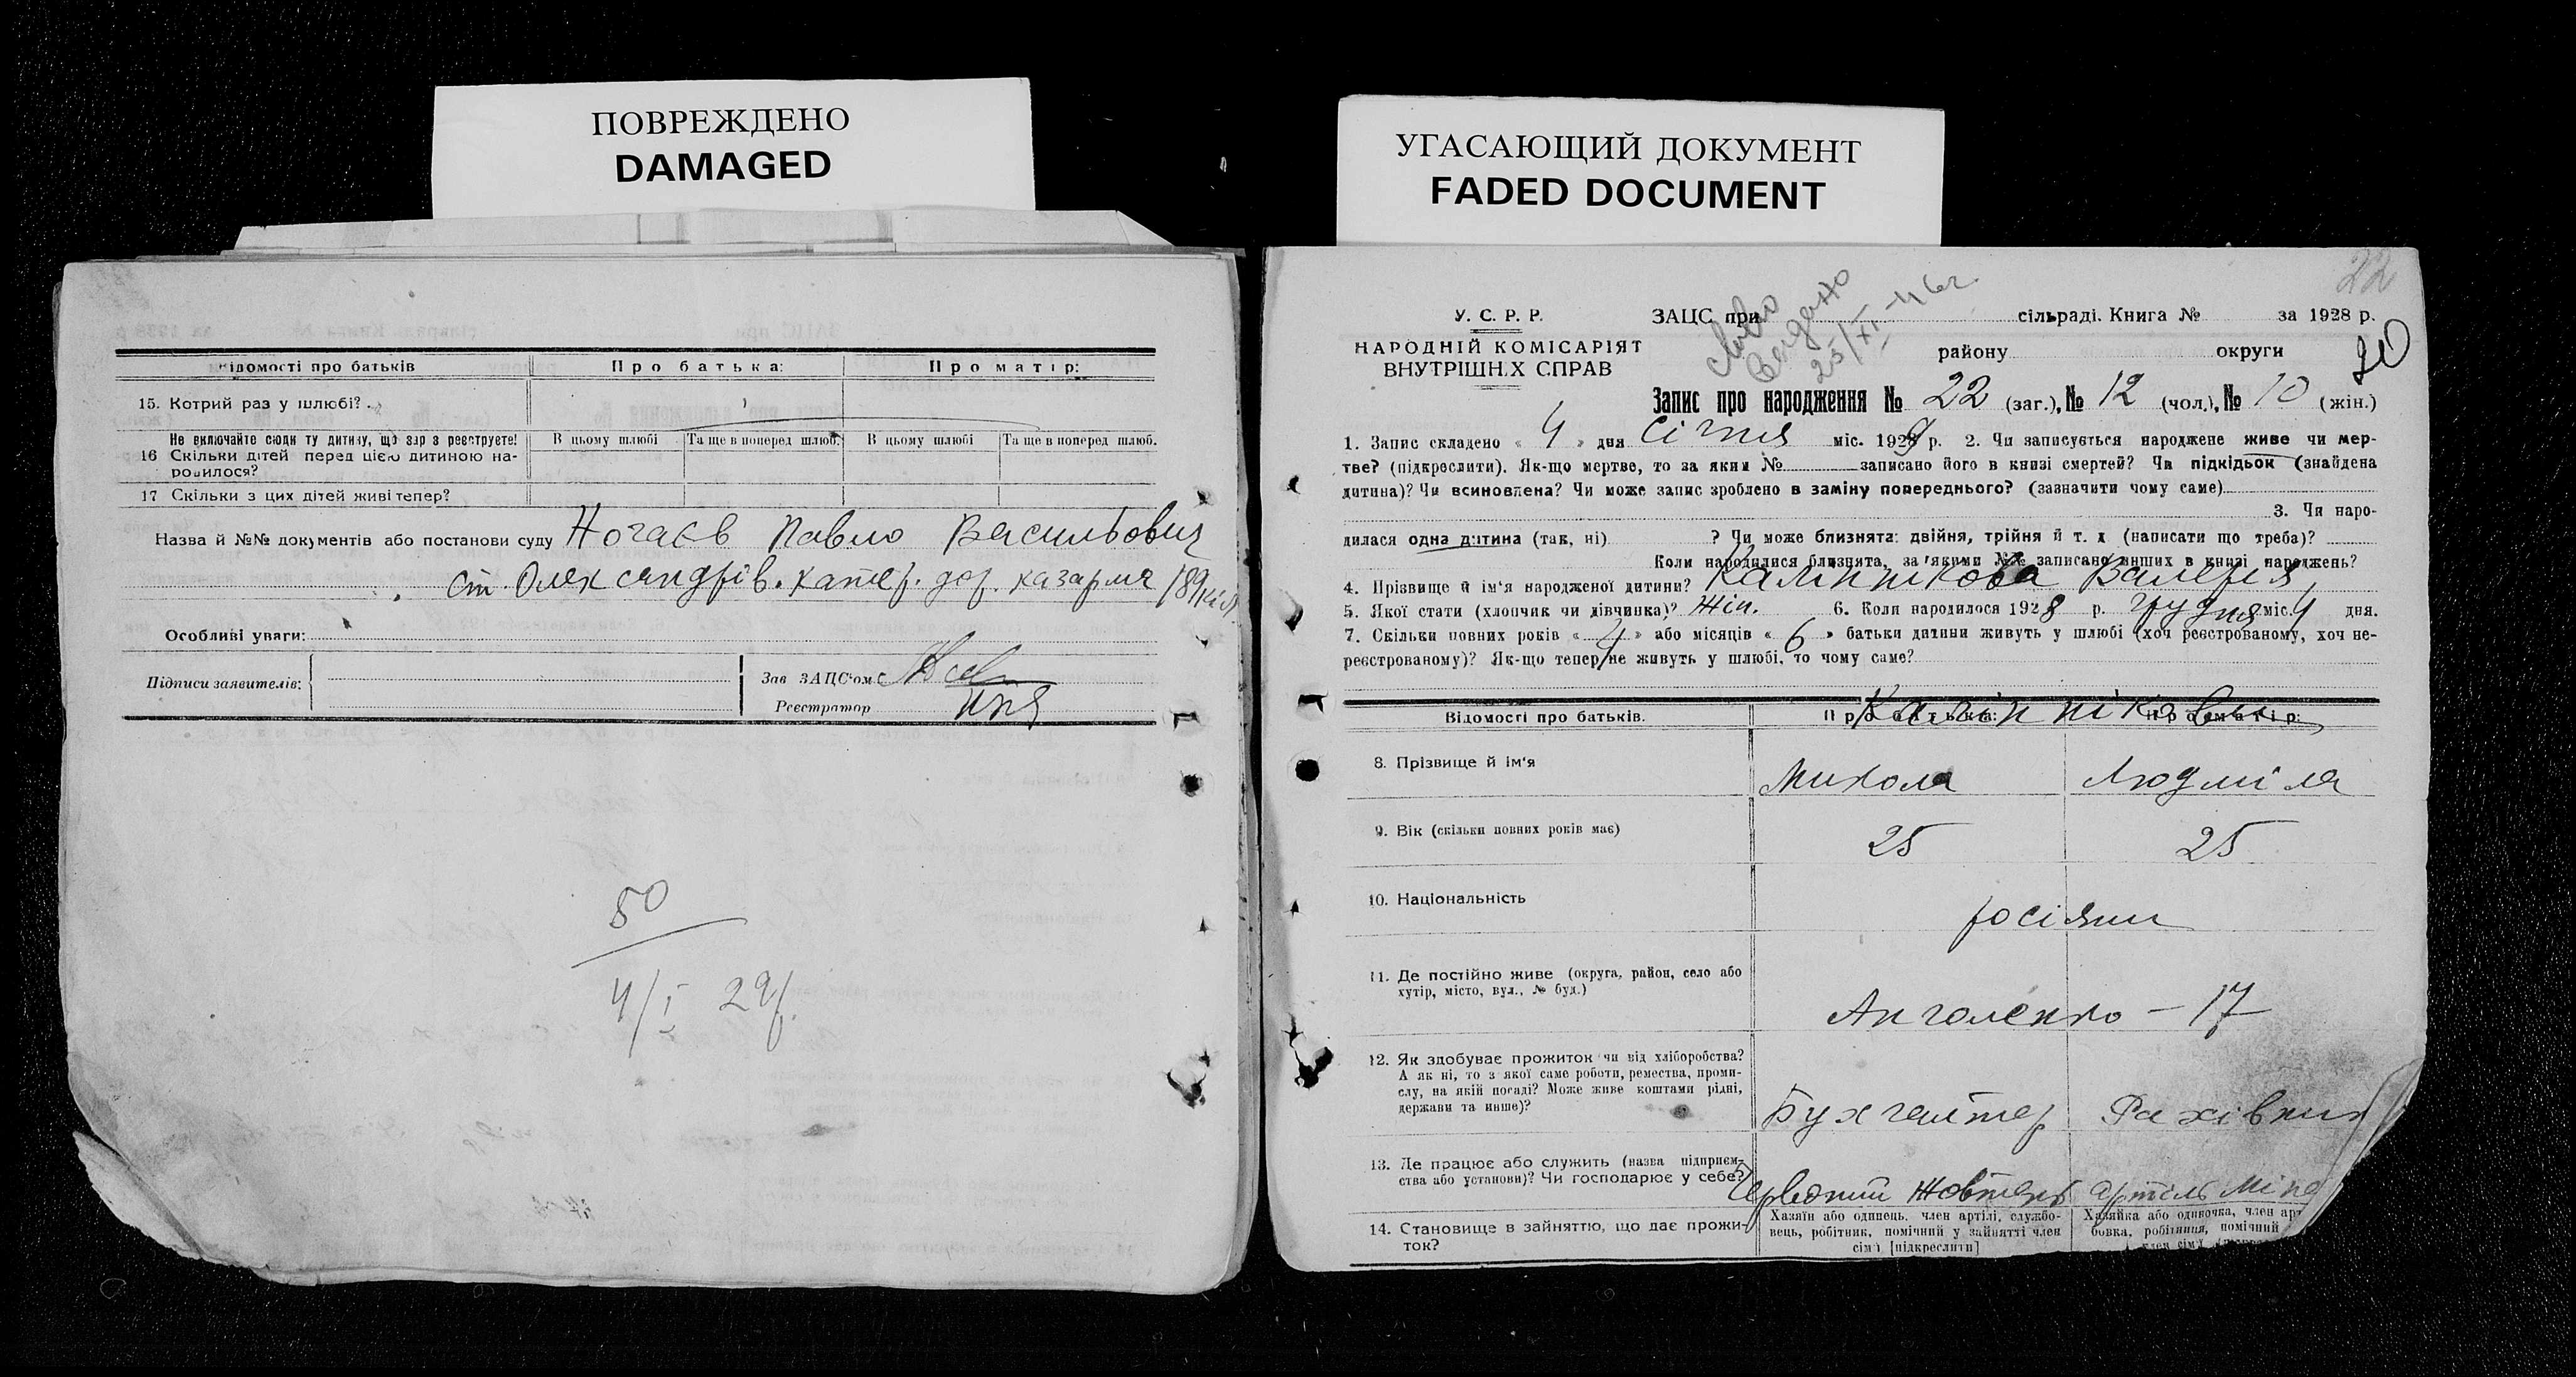 ПОВРЕЖДЕНО
DAMAGED
відомості про батьків
Про батька:
Про матір:
15. Котрий раз у шлюбі?
Не включайте сюди ту дитину, що зар з реєструєте!
16 Скільки дітей перед цією дитиною на-
родилося?
В цьому шлюбі
Та ще в поперед шлюб.
В цьому шлюбі
Та ще в поперед шлюб.
17 Скільки з цих дітей живі тепер?
Назва й №№ документів або постанови суду Ногаєв Павло Васильович
ст. Олександрів. катер. дор. казарма 189 кіл
Особливі уваги:
Підписи заявителів:
Зав ЗАЦС'ом
Реєстратор
50
4/I 29р.
УГАСАЮЩИЙ ДОКУМЕНТ
FADED DOCUMENT
22
У. С. Р. Р.
НАРОДНІЙ КОМІСАРІЯТ
ВНУТРІШНІХ СПРАВ
ЗАЦС при сільраді. Книга № за 1928 р.
району округи
20
25/XI-46г
Запис про народження № 22 (заг.), № 12 (чол.), № 10 (жін.)
1. Запис складено « 4 » дня січня міс. 1929 р. 2. Чи записується народжене живе чи мер-
тве? (підкреслити). Як-що мертве, то за яким № записано його в книзі смертей? Чи підкідьок (знайдена
дитина)? Чи всиновлена? Чи може запис зроблено в заміну попереднього? (зазначити чому саме)
3. Чи наро-
дилася одна дитина (так, ні) ? Чи може близнята: двійня, трійня й т. д (написати що треба)?
Коли народилися близнята, за якими №№ записано инших в книзі народжень?
4. Прізвище й ім'я народженої дитини? Калиннікова Валерія
5. Якої стати (хлопчик чи дівчинка)? Жін. 6. Коли народилося 1928 р. грудня міс. 4 дня.
7. Скільки повних років « 4 » або місяців « 6 » батьки дитини живуть у шлюбі (хоч реєстрованому, хоч не-
реєстрованому)? Як-що тепер не живуть у шлюбі, то чому саме?
Відомості про батьків.
Про батька:
Про матір:
Калиннікови
8. Прізвище й ім'я
Микола
Людміла
9. Вік (скільки повних років має)
25
25
10. Національність
росіяни
11. Де постійно живе (округа, район, село або
хутір, місто, вул., № буд.)
Анголенко – 17
12. Як здобуває прожиток чи від хліборобства?
А як ні, то з якої саме роботи, ремества, проми-
слу, на якій посаді? Може живе коштами рідні,
держави та инше)?
Бухгалтер
Рахівник
13. Де працює або служить (назва підприєм-
ства або установи)? Чи господарює у себе?
Червоний Жовтень
артіль
14. Становище в зайняттю, що дає прожи-
ток?
Хазяїн або одинець, член артілі, службо-
вець, робітник, помічний у зайнятті член
сім'ї [підкреслити]
Хазяйка або одиночка, член арт
бовка, робітниця, помічний
член сім'ї